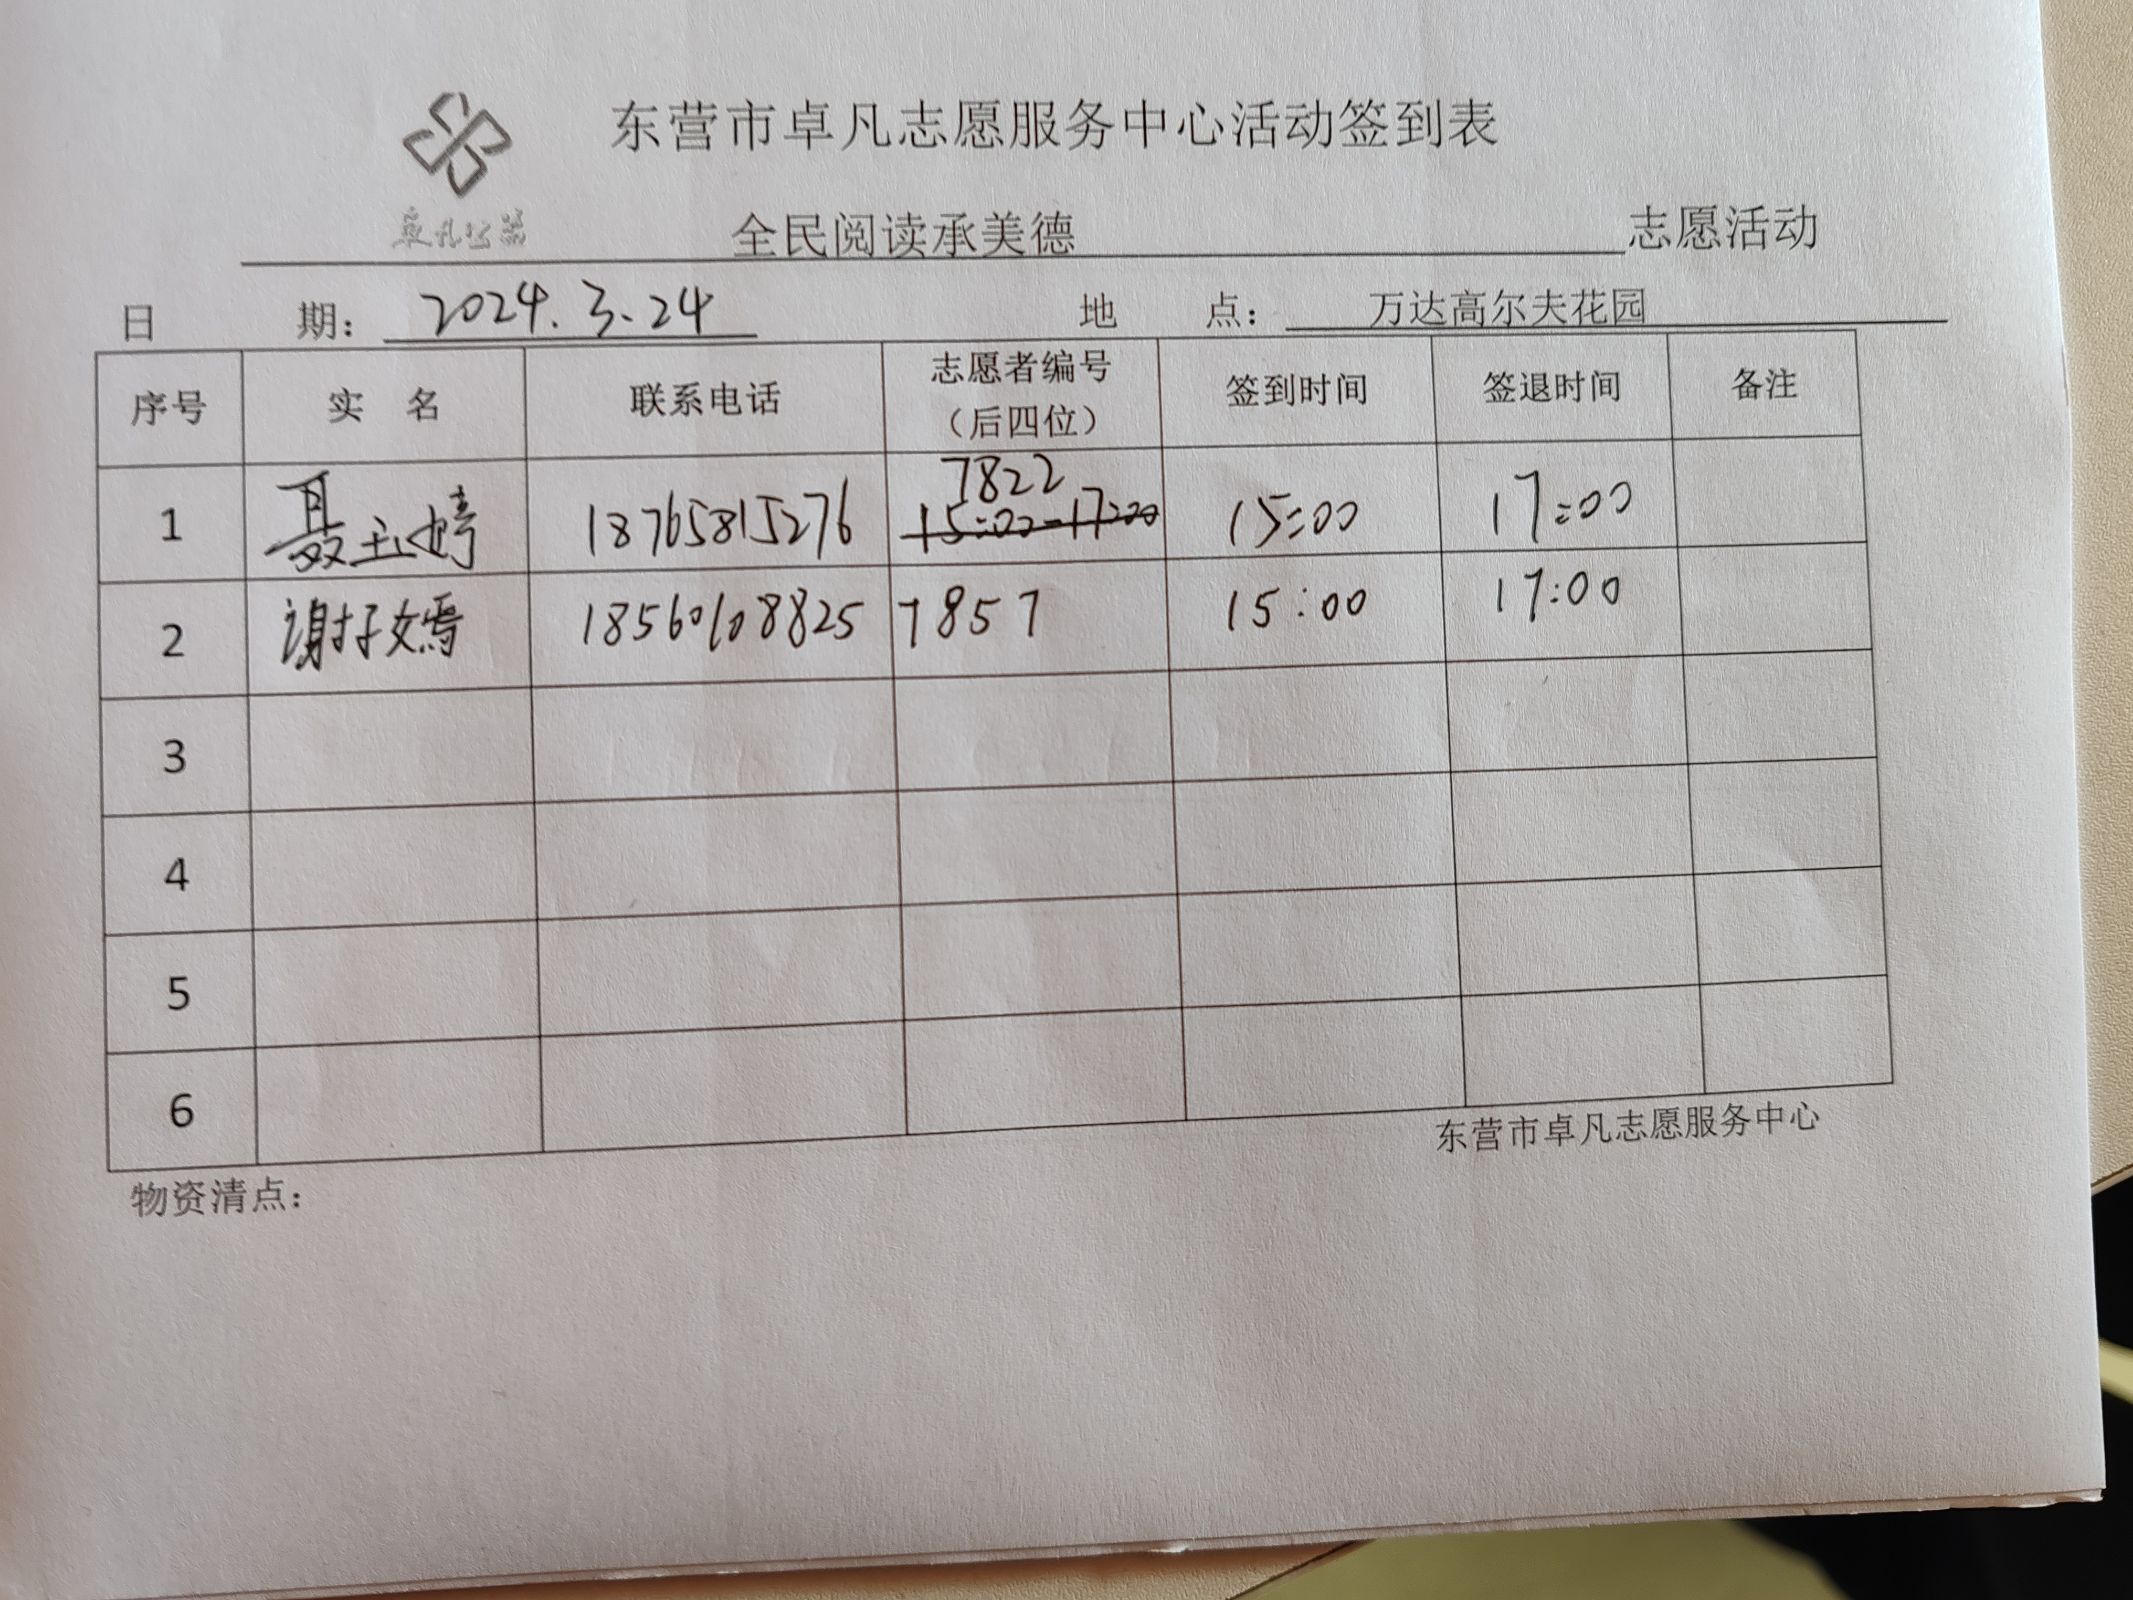 东营市卓凡志愿服务中心活动签到表
卓凡公益
全民阅读承美德 志愿活动
日 期： 2024.3.24 地 点： 万达高尔夫花园
序号 实 名 联系电话 志愿者编号（后四位） 签到时间 签退时间 备注
1 聂玉婷 18765815276 7822 15:00-17:00 15:00 17:00
2 谢抒嫣 18560108825 7857 15:00 17:00
3
4
5
6
东营市卓凡志愿服务中心
物资清点：